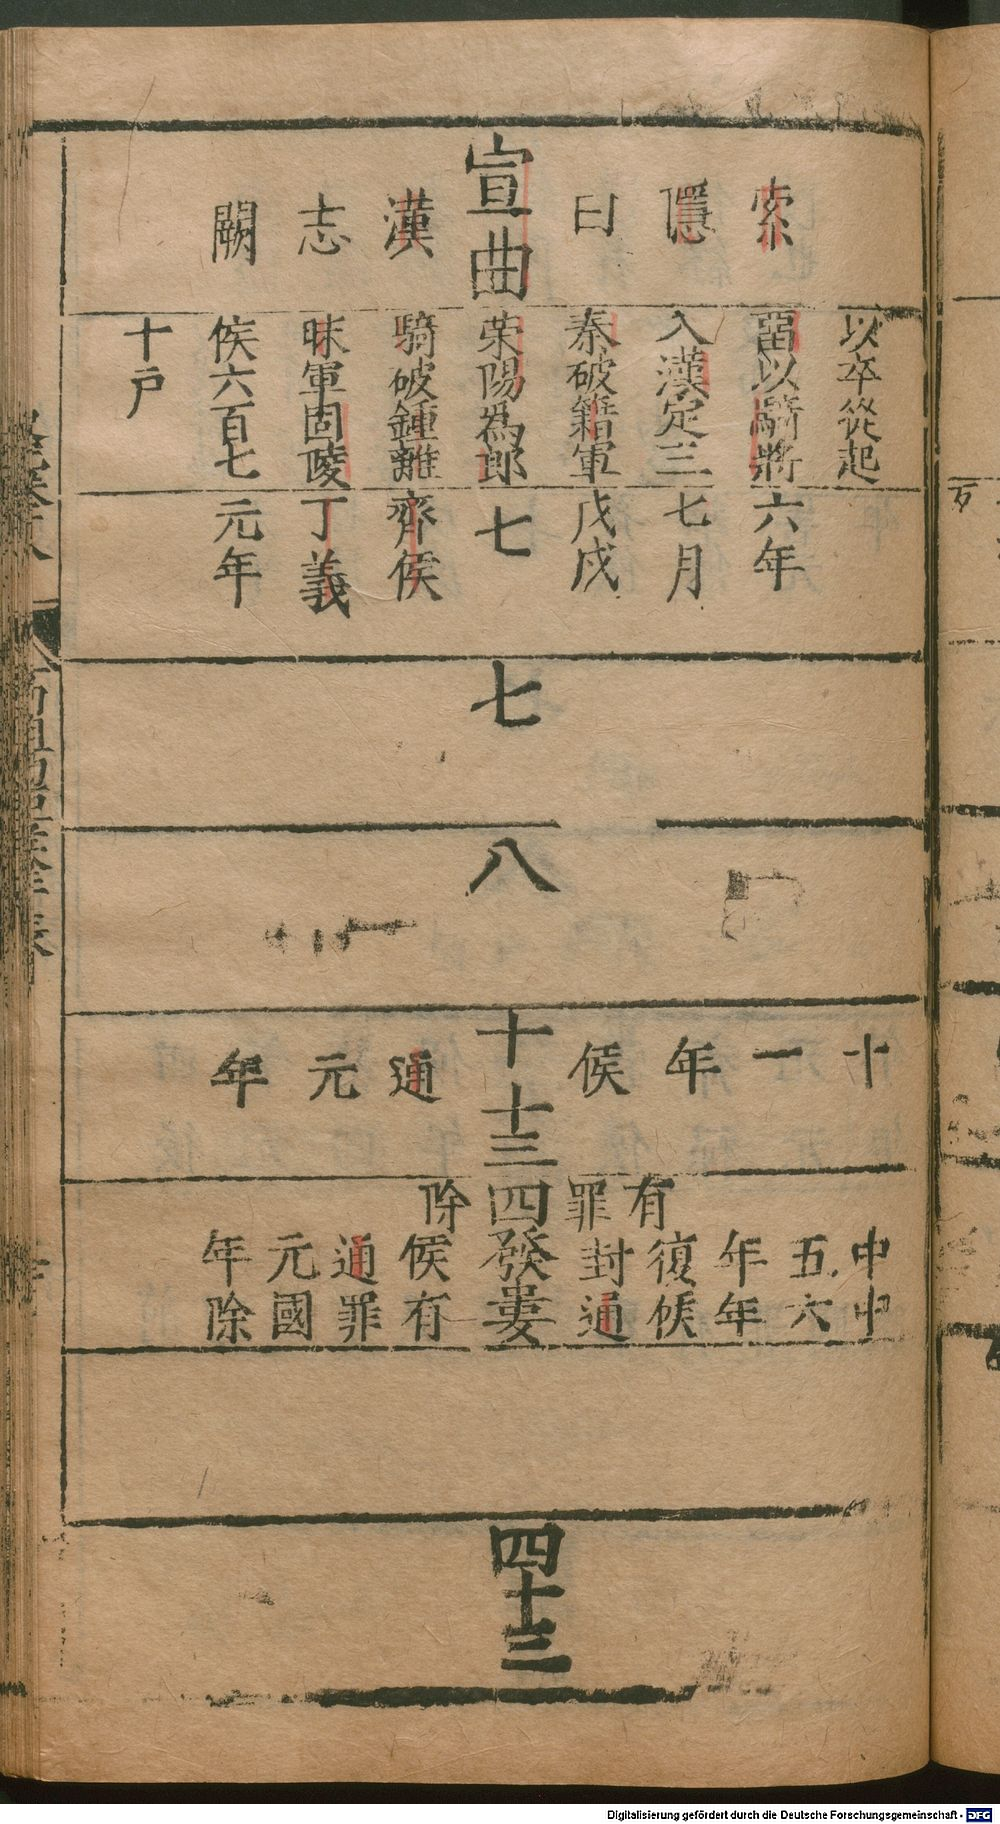 索
隱
曰
宣曲
漢
志
闕
以卒從起
畱以騎將
入漢定三
秦破籍軍
荣陽爲郎
騎破鍾離
眜軍固陵
侯六百七
十戶
六年
七月
戊戌
七
齊侯
丁義
元年
七
八
十
一
年
侯
十 十三
通
元
年
中中
五六
年年
有復侯
罪封通
四發婁
除侯有
通罪
元國
年除
四十三